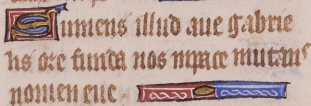 Sumens illud aue gabrie
lis ore funda nos in pace mutans
nomen eue